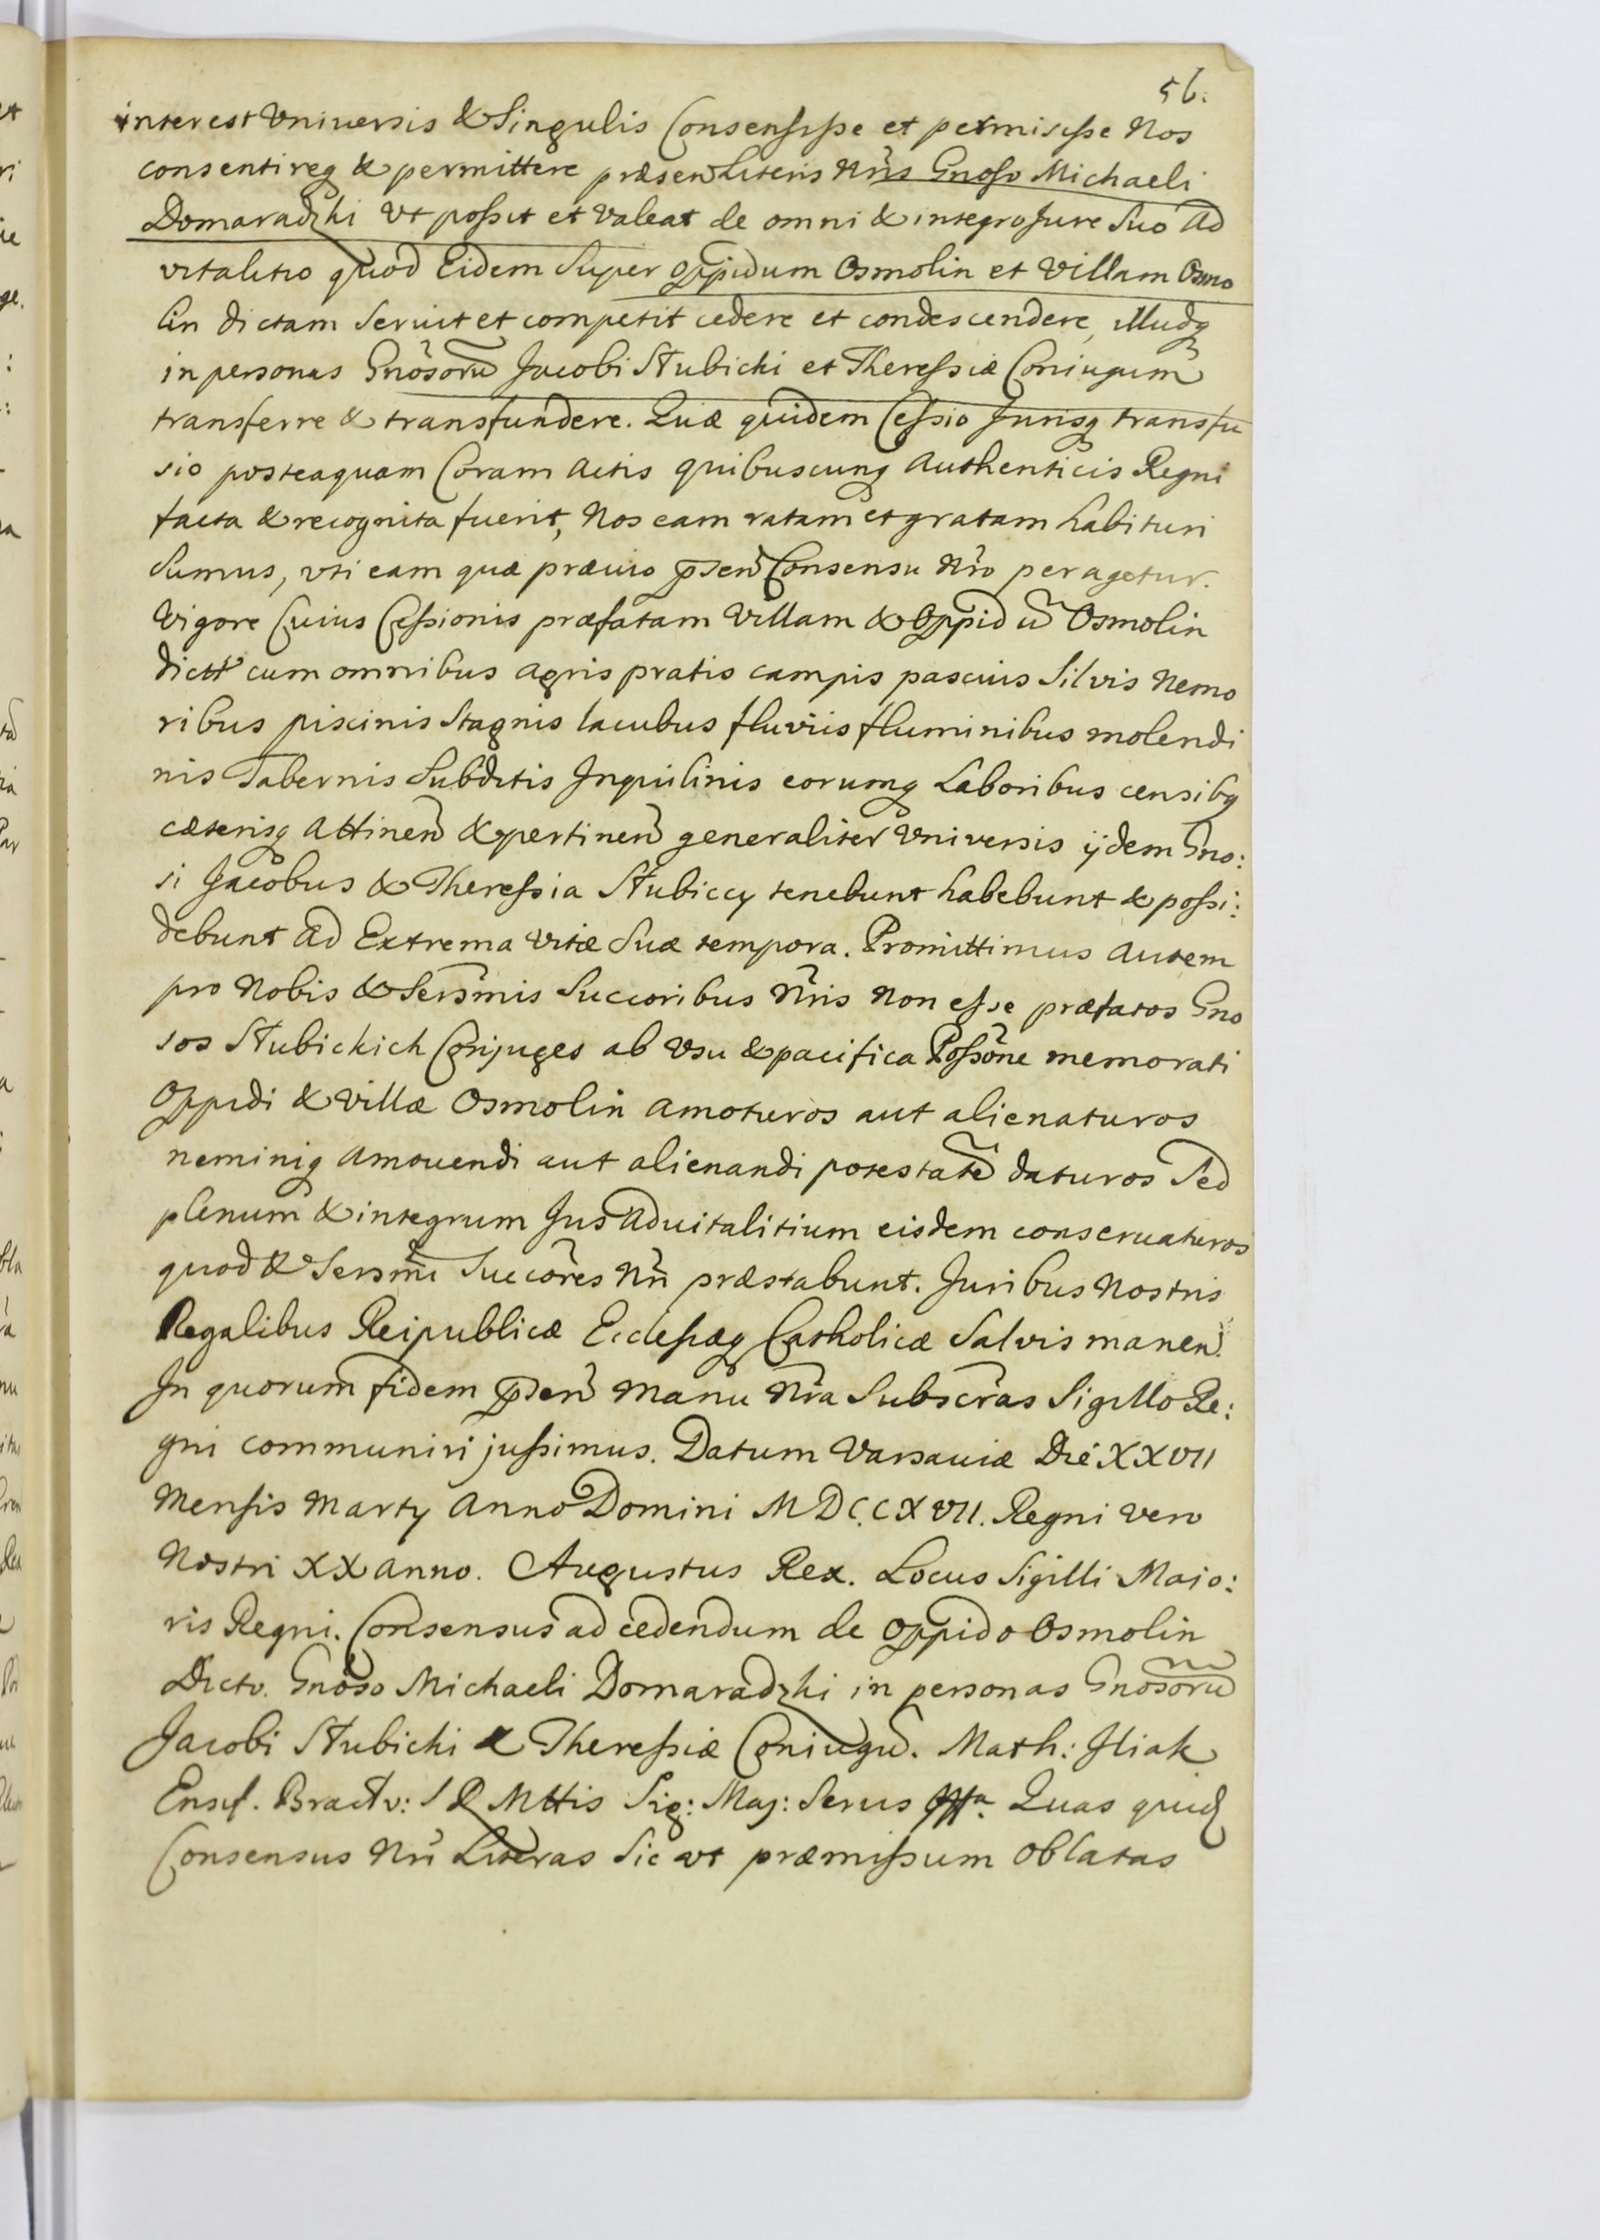 56.
interest Vniuersis & Singulis Consensisse et permisisse Nos
consentireq & permittere præsen Literis Nris Gnoso Michaeli
Domaradzki Vt possit et Valeat de omni & integro Jure Suo Ad
vitalitio quod Eidem Super Oppidum Osmolin et Villam Osmo
lin dictam Seruit et competit cedere et condescendere, illudq
in personas Gnosorũ Jacobi Stubicki et Theressiæ Coniugum
transferre & transfundere. Quæ quidem Cessio Jurisq transfu
sio posteaquam Coram Actis quibuscunq Authenticis Regni
facta & recognita fuerit, Nos eam ratam et gratam habituri
Sumus, vti eam quæ præuio pñsen Consensu Nro peragetur.
Vigore Cuius Cessionis præfatam Villam & Oppidũ Osmolin
dictt cum omnibus agris pratis campis pascuis Silvis Nemo
ribus piscinis Stagnis lacubus fluviis fluminibus molendi
nis Tabernis Subditis Inquilinis eorumq Laboribus censibq
cæterisq Attinen & pertinen generaliter Vniversis ijdem Gno:
si Jacobus & Theressia Stubiccy tenebunt habebunt & possi:
debunt ad Extrema vitæ Suæ tempora. Promittimus autem
pro Nobis & Sersmis Succoribus Nris Non esse præfatos Gno
sos Stubickich Conjuges ab Vsu & pacifica Possone memorati
Oppidi & Villæ Osmolin amoturos aut alienaturos
neminiq Amouendi aut alienandi potestatẽ daturos Sed
plenum & integrum Jus Aduitalitium eisdem conseruaturos
quod & Sersmi Succores Nri præstabunt. Juribus Nostris
Regalibus Reipublicæ Ecclesiæq Catholicæ Salvis manen.
In quorum fidem pñsen Manu Nra Subscras Sigillo Re:
gni communiri jussimus. Datum Varsauiæ Die XXVII
Mensis Martij Anno Domini MDCCXVII. Regni vero
Nostri XX anno. Augustus Rex. Locus Sigilli Maio:
ris Regni. Consensus ad cedendum de Oppido Osmolin
Dicto. Gnoso Michaeli Domaradzki in personas Gnosorũ
Jacobi Stubicki & Theressiæ Coniugũ. Math: Iliak
Ensif. Bractv: S R Mttis Sig: Maj: Serus Quas quid
Consensus Nri Literas Sic ut præmissum Oblatas